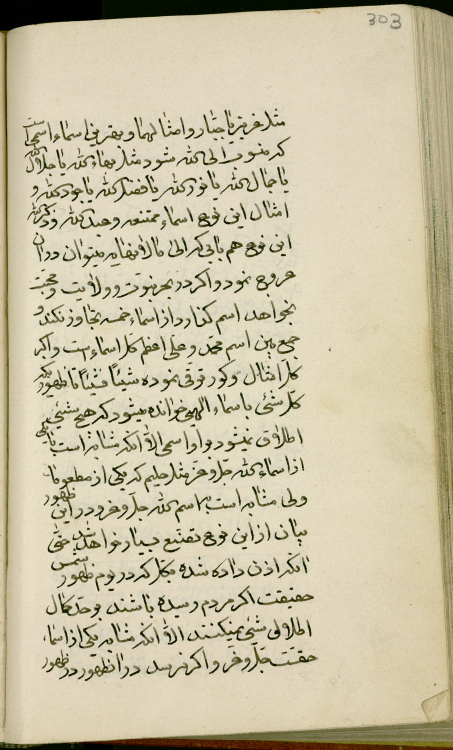 303
مثل عزیز یا جبار و امثالهما و بعد فی اسماء است
که منسوب الی الله شود مثل بهاء الله یا جلال الله
یا جمال الله یا نور الله یا فضل الله یا جود الله و
امثال این نوع اسماء ممتنعه و عبد الله و ذکر الله
این نوع هم بابی که الی مالانهایه میتوان در آن
عروج نمود و اگر در بحر نبوت و ولایت و محبت
بخواهد اسم گذارد از اسماء خمسه تجاوز نکند و
جمع بین اسم محمد و علی اعظم کل اسماء است و اگر
کل امثال و کور ترقی نموده شیئا فشیئا تا ظهور که
کل شئ باسماء الهی خوانده میشود که هیچ شیئی
اطلاق نمیشود بر او اسمی الا آنکه مشابه است باسمی
از اسماء الله جل و عز مثل حلیم که یکی از مطعومات
ولی مشابه است باسم الله جل و عز و در این ظهور
بیان از این نوع تصنع بسیار خواهد شد حتی
آنکه اذن داده شده بکل که در یوم ظهور شمس
حقیقت اگر مردم رسیده باشند بوحد کمال
اطلاق شیئ نمیکنند الا آنکه مشابه یکی از اسماء
حقست جل و عز و اگر نرسد در آن ظهور در ظهور